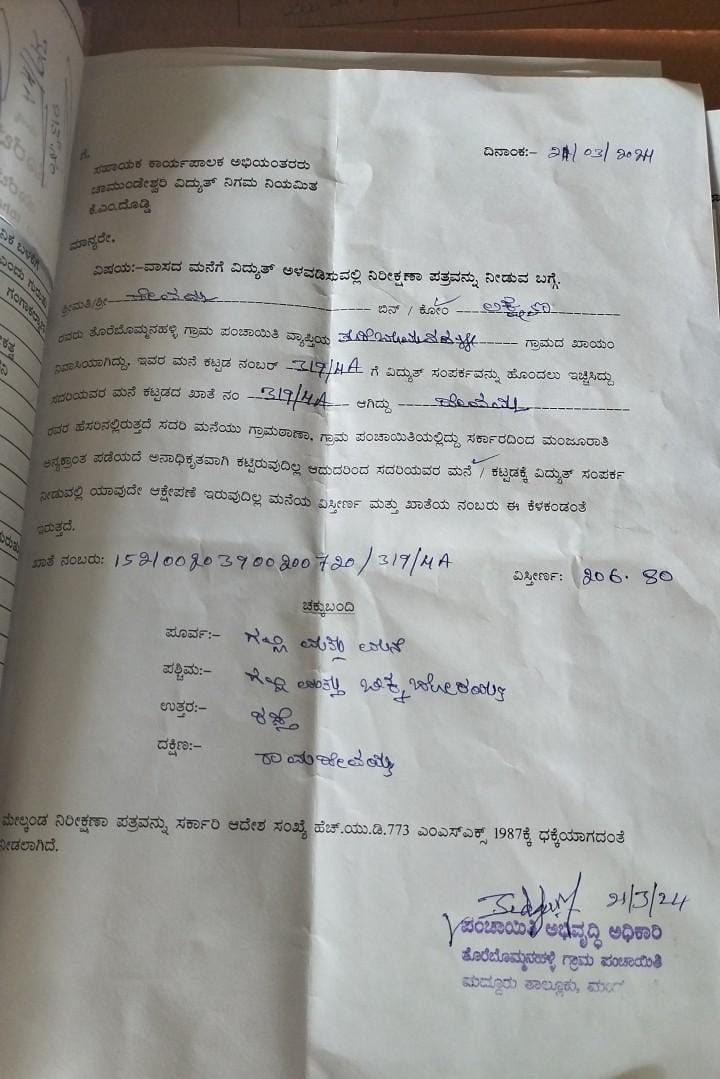 ಗೆ,
ದಿನಾಂಕ:- 21/03/2024
ಸಹಾಯಕ ಕಾರ್ಯಪಾಲಕ ಅಭಿಯಂತರರು
ಚಾಮುಂಡೇಶ್ವರಿ ವಿದ್ಯುತ್ ನಿಗಮ ನಿಯಮಿತ
ಕೆ.ಎಂ.ದೊಡ್ಡಿ
ಮಾನ್ಯರೇ,
ವಿಷಯ:-ವಾಸದ ಮನೆಗೆ ವಿದ್ಯುತ್ ಅಳವಡಿಸುವಲ್ಲಿ ನಿರೀಕ್ಷಣಾ ಪತ್ರವನ್ನು ನೀಡುವ ಬಗ್ಗೆ.
ಶ್ರೀಮತಿ/ಶ್ರೀ ಬಿನ್ / ಕೋಂ
ರವರು ತೊರೆಬೊಮ್ಮನಹಳ್ಳಿ ಗ್ರಾಮ ಪಂಚಾಯಿತಿ ವ್ಯಾಪ್ತಿಯ ತೊರೆಬೊಮ್ಮನಹಳ್ಳಿ ಗ್ರಾಮದ ಖಾಯಂ
ನಿವಾಸಿಯಾಗಿದ್ದು, ಇವರ ಮನೆ ಕಟ್ಟಡ ನಂಬರ್ 319/4A ಗೆ ವಿದ್ಯುತ್ ಸಂಪರ್ಕವನ್ನು ಹೊಂದಲು ಇಚ್ಚಿಸಿದ್ದು
ಸದರಿಯವರ ಮನೆ ಕಟ್ಟಡದ ಖಾತೆ ನಂ 319/4A ಆಗಿದ್ದು
ರವರ ಹೆಸರಿನಲ್ಲಿರುತ್ತದೆ ಸದರಿ ಮನೆಯು ಗ್ರಾಮಠಾಣಾ, ಗ್ರಾಮ ಪಂಚಾಯಿತಿಯಲ್ಲಿದ್ದು ಸರ್ಕಾರದಿಂದ ಮಂಜೂರಾತಿ
ಅನ್ಯಕ್ರಾಂತ ಪಡೆಯದೆ ಅನಾಧಿಕೃತವಾಗಿ ಕಟ್ಟಿರುವುದಿಲ್ಲ ಆದುದರಿಂದ ಸದರಿಯವರ ಮನೆ / ಕಟ್ಟಡಕ್ಕೆ ವಿದ್ಯುತ್ ಸಂಪರ್ಕ
ನೀಡುವಲ್ಲಿ ಯಾವುದೇ ಆಕ್ಷೇಪಣೆ ಇರುವುದಿಲ್ಲ ಮನೆಯ ವಿಸ್ತೀರ್ಣ ಮತ್ತು ಖಾತೆಯ ನಂಬರು ಈ ಕೆಳಕಂಡಂತೆ
ಇರುತ್ತದೆ.
ಖಾತೆ ನಂಬರು: 152100203900200720/319/4A ವಿಸ್ತೀರ್ಣ: 206.80
ಚಕ್ಕುಬಂದಿ
ಪೂರ್ವ:- ಗಲ್ಲಿ ಮತ್ತು ಮನೆ
ಪಶ್ಚಿಮ:- ಗಲ್ಲಿ ಮತ್ತು
ಉತ್ತರ:- ರಸ್ತೆ
ದಕ್ಷಿಣ:-
ಮೇಲ್ಕಂಡ ನಿರೀಕ್ಷಣಾ ಪತ್ರವನ್ನು ಸರ್ಕಾರಿ ಆದೇಶ ಸಂಖ್ಯೆ ಹೆಚ್.ಯು.ಡಿ.773 ಎಂಎಸ್ಎಕ್ಸ್ 1987ಕ್ಕೆ ಧಕ್ಕೆಯಾಗದಂತೆ
ನೀಡಲಾಗಿದೆ.
21/3/24
ಪಂಚಾಯಿತಿ ಅಭಿವೃದ್ಧಿ ಅಧಿಕಾರಿ
ತೊರೆಬೊಮ್ಮನಹಳ್ಳಿ ಗ್ರಾಮ ಪಂಚಾಯಿತಿ
ಮದ್ದೂರು ತಾಲ್ಲೂಕು,